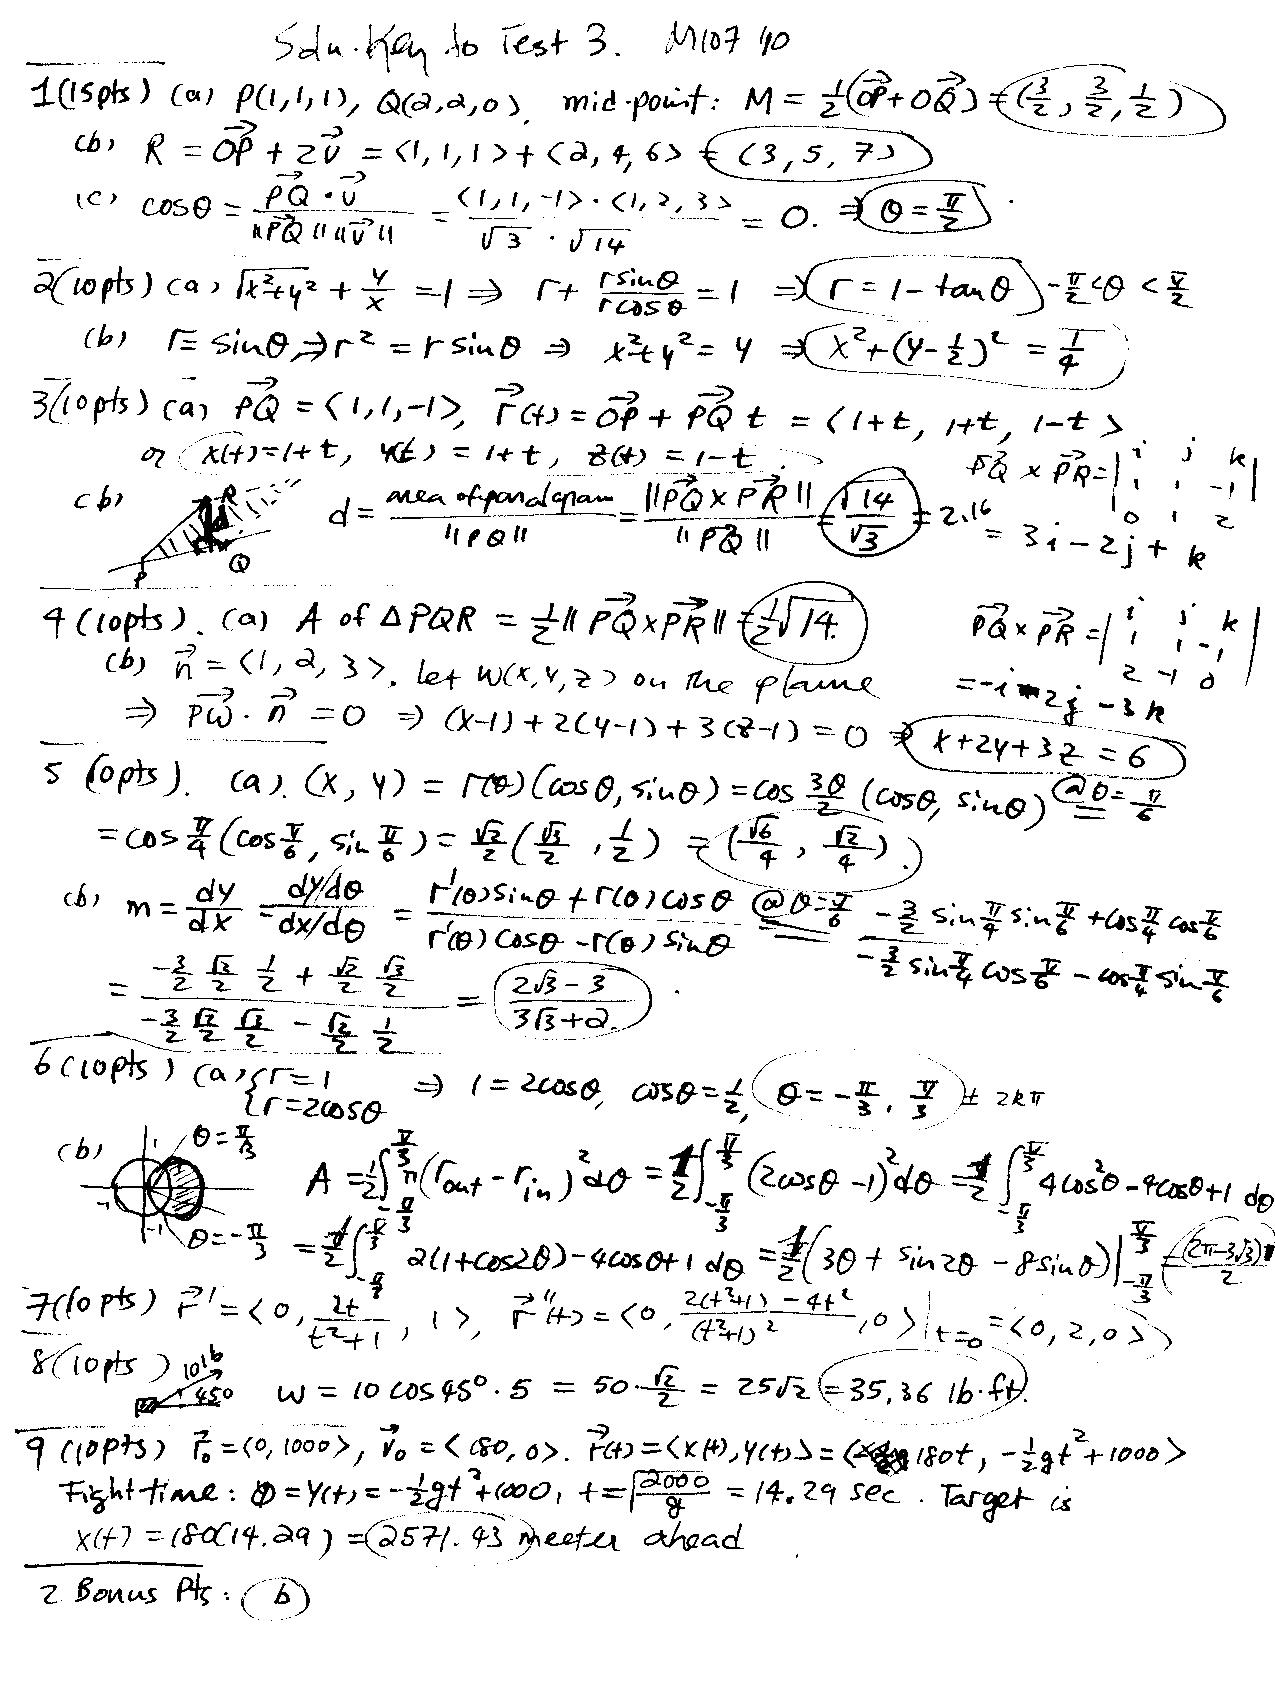 Soln. Key to Test 3. M107 40
1(15pts) (a) P(1,1,1), Q(2,2,0), mid-point: M = ½(OP⃗ + OQ⃗) = (3/2, 3/2, 1/2)
(b) R = OP⃗ + 2v⃗ = <1,1,1> + <2,4,6> = (3,5,7)
(c) cosθ = PQ⃗·v⃗ / ||PQ⃗|| ||v⃗|| = <1,1,-1>·<1,2,3> / √3·√14 = 0. ⇒ θ = π/2
2(10pts) (a) √x²+y² + y/x = 1 ⇒ r + rsinθ/rcosθ = 1 ⇒ r = 1 - tanθ, -π/2<θ<π/2
(b) r = sinθ ⇒ r² = r sinθ ⇒ x²+y² = y ⇒ x²+(y-½)² = 1/4
3(10pts) (a) PQ⃗ = <1,1,-1>, r⃗(t) = OP⃗ + PQ⃗ t = <1+t, 1+t, 1-t>
or x(t)=1+t, y(t) = 1+t, z(t) = 1-t. PQ⃗ × PR⃗ = | i j k
1 1 -1
0 1 2 |
(b) R d Q P d = area of parallelogram / ||PQ|| = ||PQ⃗ × PR⃗|| / ||PQ⃗|| = √14/√3 = 2.16
= 3i - 2j + k
4(10pts). (a) A of ΔPQR = ½||PQ⃗×PR⃗|| = ½√14. PQ⃗×PR⃗ = | i j k
1 1 -1
2 -1 0 |
(b) n⃗ = <1,2,3>. let W(x,y,z) on the plane = -i - 2j - 3k
⇒ PW⃗ · n⃗ = 0 ⇒ (x-1)+2(y-1)+3(z-1) = 0 ⇒ x+2y+3z = 6
5 (10pts). (a). (x, y) = r(θ)(cosθ, sinθ) = cos 3θ/2 (cosθ, sinθ) @θ=π/6
= cos π/4 (cos π/6, sin π/6) = √2/2 (√3/2, 1/2) = (√6/4, √2/4).
(b) m = dy/dx = dy/dθ / dx/dθ = r'(θ)sinθ + r(θ)cosθ / r'(θ)cosθ - r(θ)sinθ @θ=π/6 -3/2 sin π/4 sin π/6 + cos π/4 cos π/6 / -3/2 sin π/4 cos π/6 - cos π/4 sin π/6
= -3/2 √2/2 1/2 + √2/2 √3/2 / -3/2 √2/2 √3/2 - √2/2 1/2 = 2√3-3 / 3√3+2.
6(10pts) (a) { r=1 r=2cosθ ⇒ 1 = 2cosθ, cosθ=½, θ = -π/3, π/3 ± 2kπ
(b) θ=π/3 A = ½∫_{-π/3}^{π/3} (r_out - r_in)² dθ = ½∫_{-π/3}^{π/3} (2cosθ-1)² dθ = ½∫_{-π/3}^{π/3} 4cos²θ-4cosθ+1 dθ
1 -1 -1 θ=-π/3 = ½∫_{-π/3}^{π/3} 2(1+cos2θ)-4cosθ+1 dθ = ½(3θ + sin2θ - 8sinθ)|_{-π/3}^{π/3} = (2π-3√3)/2
7(10pts) r⃗' = <0, 2t/t²+1, 1>, r⃗''(t) = <0, 2(t²+1)-4t²/(t²+1)², 0>|t=0 = <0,2,0>
8(10pts) 10lb 45° W = 10cos45°·5 = 50·√2/2 = 25√2 = 35.36 lb·ft.
9(10pts) r⃗₀ = <0,1000>, v⃗₀ = <180,0>. r⃗(t) = <x(t),y(t)> = <180t, -½gt²+1000>
Fight time: 0 = y(t) = -½gt²+1000, t = √2000/g = 14.29 sec. Target is
x(t) = 180(14.29) = 2571.43 meeter ahead
2 Bonus Pts: b